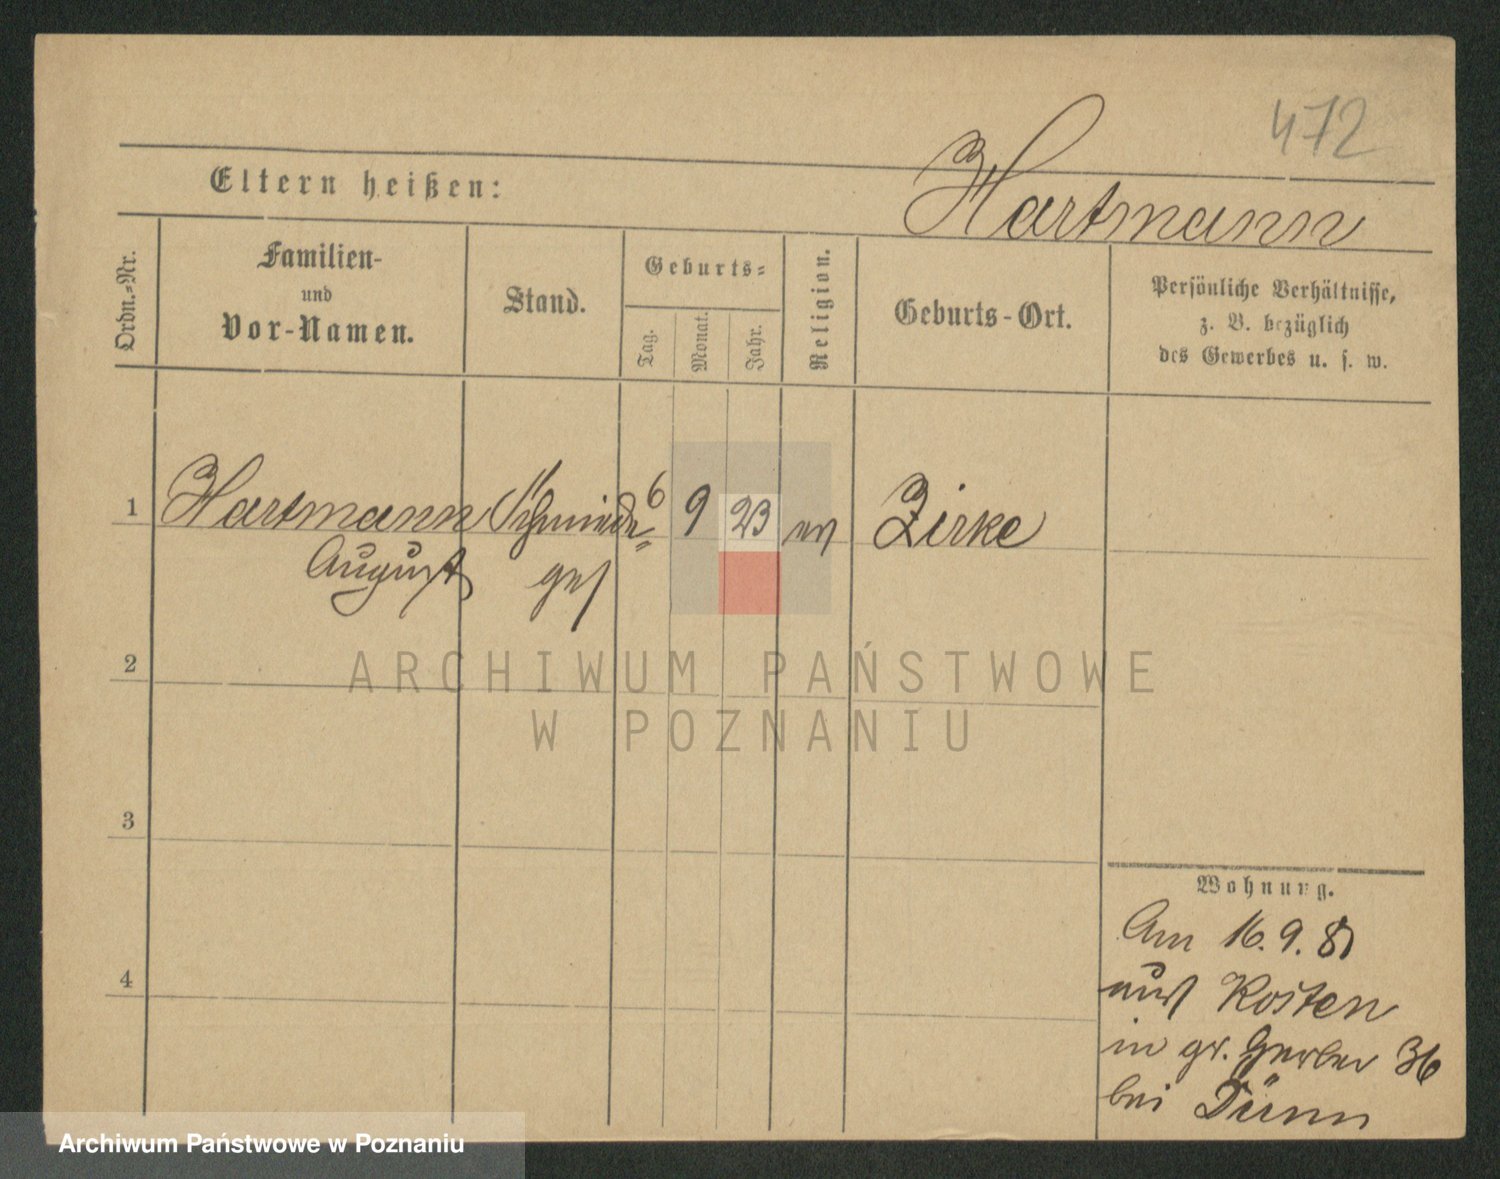 472
Eltern heißen:
Hartmann
Ordn.=Nr.
Familien-
und
Vor-Namen.
Stand.
Geburts=
Tag.
Monat.
Jahr.
Religion.
Geburts-Ort.
Persönliche Verhältnisse,
z. B. bezüglich
des Gewerbes u. s. w.
1 Hartmann Schmiede= 6 9 23 ev Zirke
August ges
2
ARCHIWUM PAŃSTWOWE
W POZNANIU
3
4
Wohnung.
Am 16. 9. 81
aus Kosten
in gr. Gerber 36
bei Dünn
Archiwum Państwowe w Poznaniu